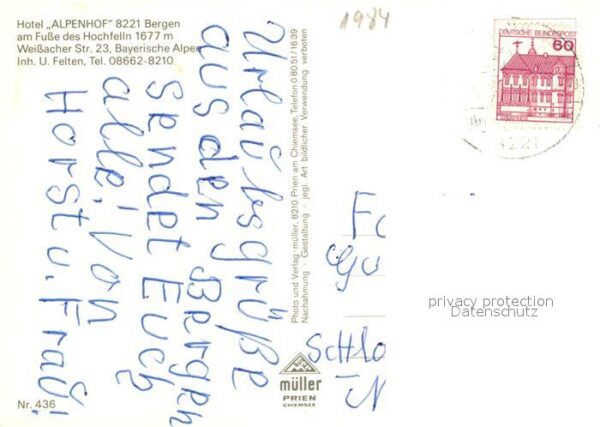 Hotel „ALPENHOF" 8221 Bergen
am Fuße des Hochfelln 1677 m
Weißacher Str. 23, Bayerische Alpen
Inh. U. Felten, Tel. 08662-8210
1984
DEUTSCHE BUNDESPOST
60
8221
Urlaubsgrüße
aus den Bergen
sendet Euch
alle! Von
Horst u. Frau!
Photo und Verlag · müller, 8210 Prien am Chiemsee, Telefon 0 80 51 / 16 39
Nachahmung · Gestaltung · jegl. Art bildlicher Verwendung verboten
Schlo
müller
PRIEN
CHIEMSEE
Nr. 436
privacy protection
Datenschutz